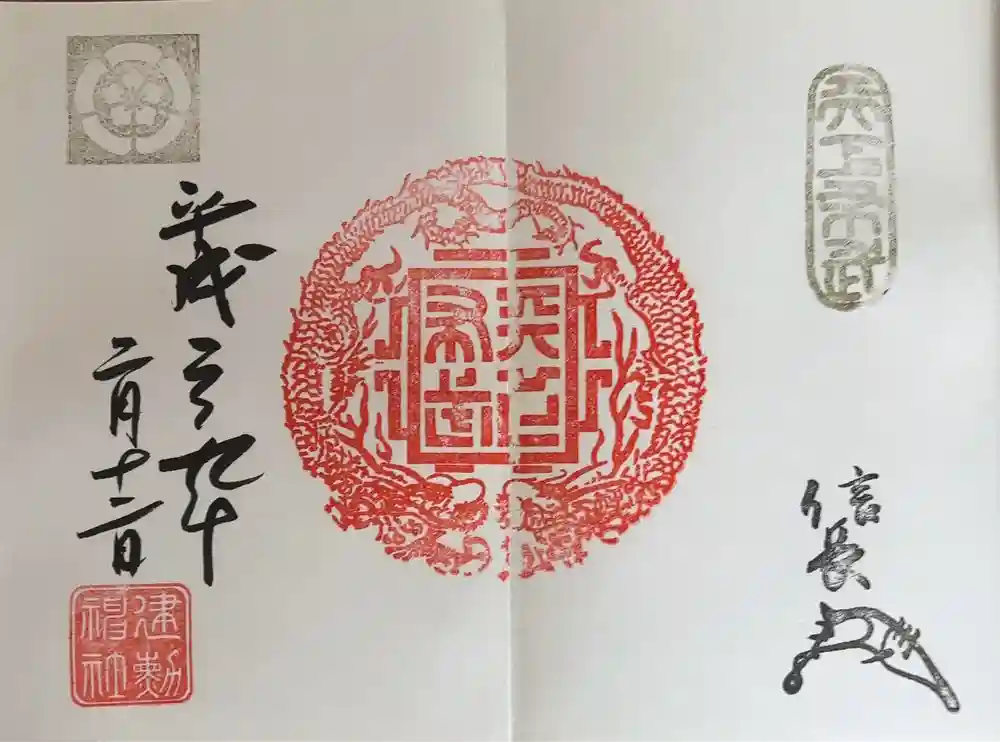 天下布武
信長
天下布武
平成
二月十二日
建勲
神社